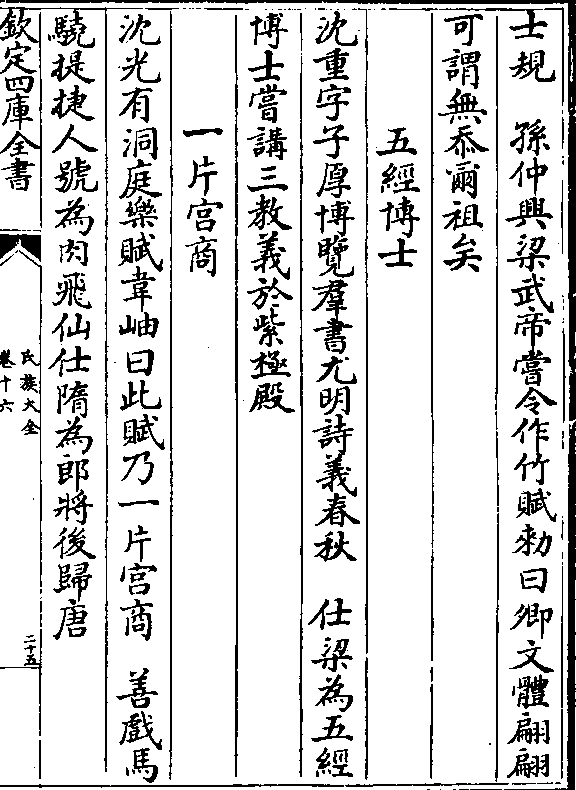 士規　孫仲興梁武帝嘗令作竹賦勑曰卿文體翩翩
可謂無忝爾祖矣
五經博士
沈重字子厚博覽羣書尤明詩義春秋　仕梁為五經
博士嘗講三教義於紫極殿
一片宫商
沈光有洞庭樂賦韋岫曰此賦乃一片宫商　善戲馬
驍捷人號為肉飛仙仕隋為郎將後歸唐
欽定四庫全書
氏族大全
卷十六
二十五